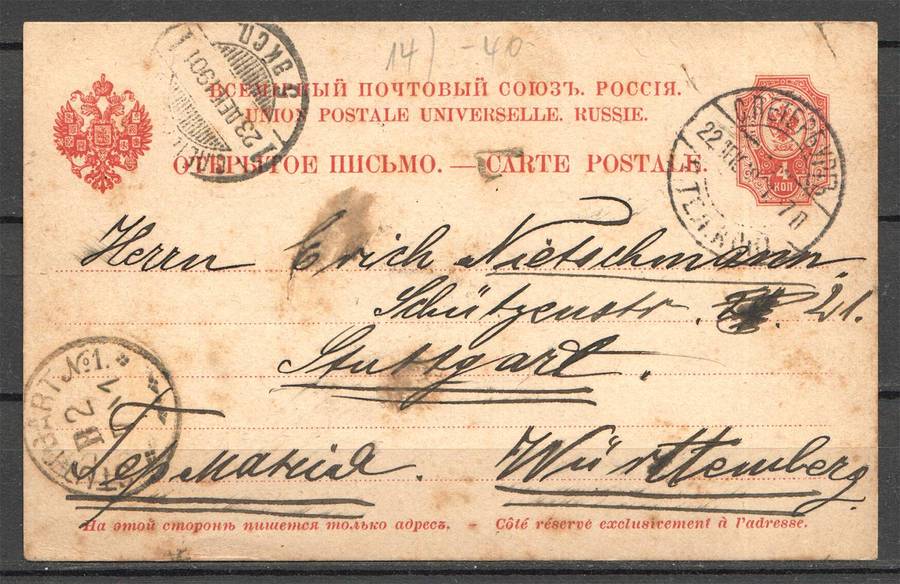 14) -40
ВСЕМІРНЫЙ ПОЧТОВЫЙ СОЮЗЪ. РОССІЯ.
UNION POSTALE UNIVERSELLE. RUSSIE.
ОТКРЫТОЕ ПИСЬМО. — CARTE POSTALE.
23 ДЕК 1901
ЭКСП.
С.ПЕТЕРБУРГЪ
22
ТЕЛ.
4
КОП
Herrn Erich Nietschmann,
Schützenstr. 21.
Stuttgart.
STUTTGART №1.
Германія. Württemberg
На этой сторонѣ пишется только адресъ. - Côté réservé exclusivement à l'adresse.